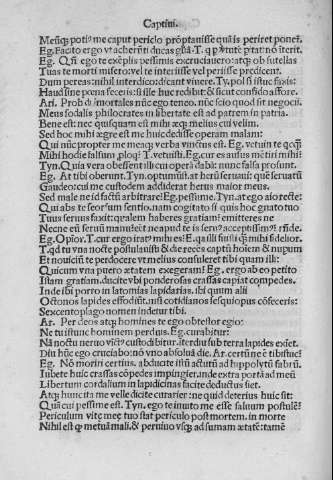 Captiui.
Meūq; potiꝰ me caput periclo pręoptauisse quā is periret poneř.
Eg. Facito ergo vt acherōti ducas gl̄iā. T. q p ꝟtutē p̄tat: nō iterit.
Eg. Qn̄ ego te exēplis pessimis excruciauero: atq; ob sutelas
Tuas te morti misero: vel te interiisse vel periisse prędicent.
Dum pereas: nihil interdico: dicāt viuere. Ty. pol si istuc faxis:
Haud sine pœna feceris: si ille huc redibit: & sicut confido affore.
Ari. Prob dī immortales nūc ego teneo. nūc scio quod sit negocii.
Meus sodalis philocrates in libertate est ad patrem in patria.
Bene est: nec quisquam est mihi æq; melius cui velim.
Sed hoc mihi ægre est me huic dedisse operam malam:
Qui nūc propter me meaq; verba vinctus est. Eg. vetuin te quęq̄
Mihi hodie falsum ploq? T. vetuisti. Eg. cur es ausus mētiri mihi?
Tyn. Quia vera obessent illi cui operā dabā: nunc falsa prosunt.
Eg. At tibi oberunt. Tyn. optumū est. at herū seruaui: quē seruatū
Gaudeo: cui me custodem addiderat herus maior meus.
Sed male ne id factū arbitrare? Eg. pessime. Tyn. at ego aio recte:
Qui abs te seorsum sentio. nam cogitato si quis hoc gnato tuo
Tuus seruus faxit: qualem haberes gratiam? emitteres ne
Necne eū seruū manu? eēt ne apud te is seruꝰ acceptissimꝰ? rn̄de.
Eg. Opior. T. cur ergo iratꝰ mihi es? E. quia illi fuisti q̄ mihi fidelior.
T. qd tu vna nocte postulauisti & die recēs captū hoiem & nupum
Et nouiciū te perdocere vt melius consuleret tibi quam illi:
Quicum vna puero ætatem exegeram? Eg. ergo ab eo petito
Istam gratiam. ducite vbi ponderosas crassas capiat compedes.
Inde ibi porro in latomias lapidarias. ibi quum alii
Octonos lapides effodiūt. nisi cotidianos sesquiopus cōfeceris:
Sexcentoplago nomen indetur tibi.
Ar. Per deos atq; homines te ego obtestor egio:
Ne tu istunc hominem perduis. Eg. curabitur:
Nā noctu neruo vīctꝰ custodibitur. iterdiu sub terra lapides eximet.
Diu hūc ego cruciabo: nō vno absoluā die. Ar. certū ne ē tibi istuc?
Eg. Nō moriri certius. abducite istū actutū ad hippolytū fabrū.
Iubete huic crassas cōpedes impingier. inde extra portā ad meū
Libertum cordalium in lapidicinas facite deductus siet.
Atq; hunc ita me velle dicite curarier: ne quid deterius huic sit:
Quā cui pessime est. Tyn. ego te inuito me esse saluum postulē?
Periculum vitę meę tuo stat periculo post mortem. in morte
Nihil est q̄ metuā mali. & peruiuo vsq; ad sumam ætatē: tamē